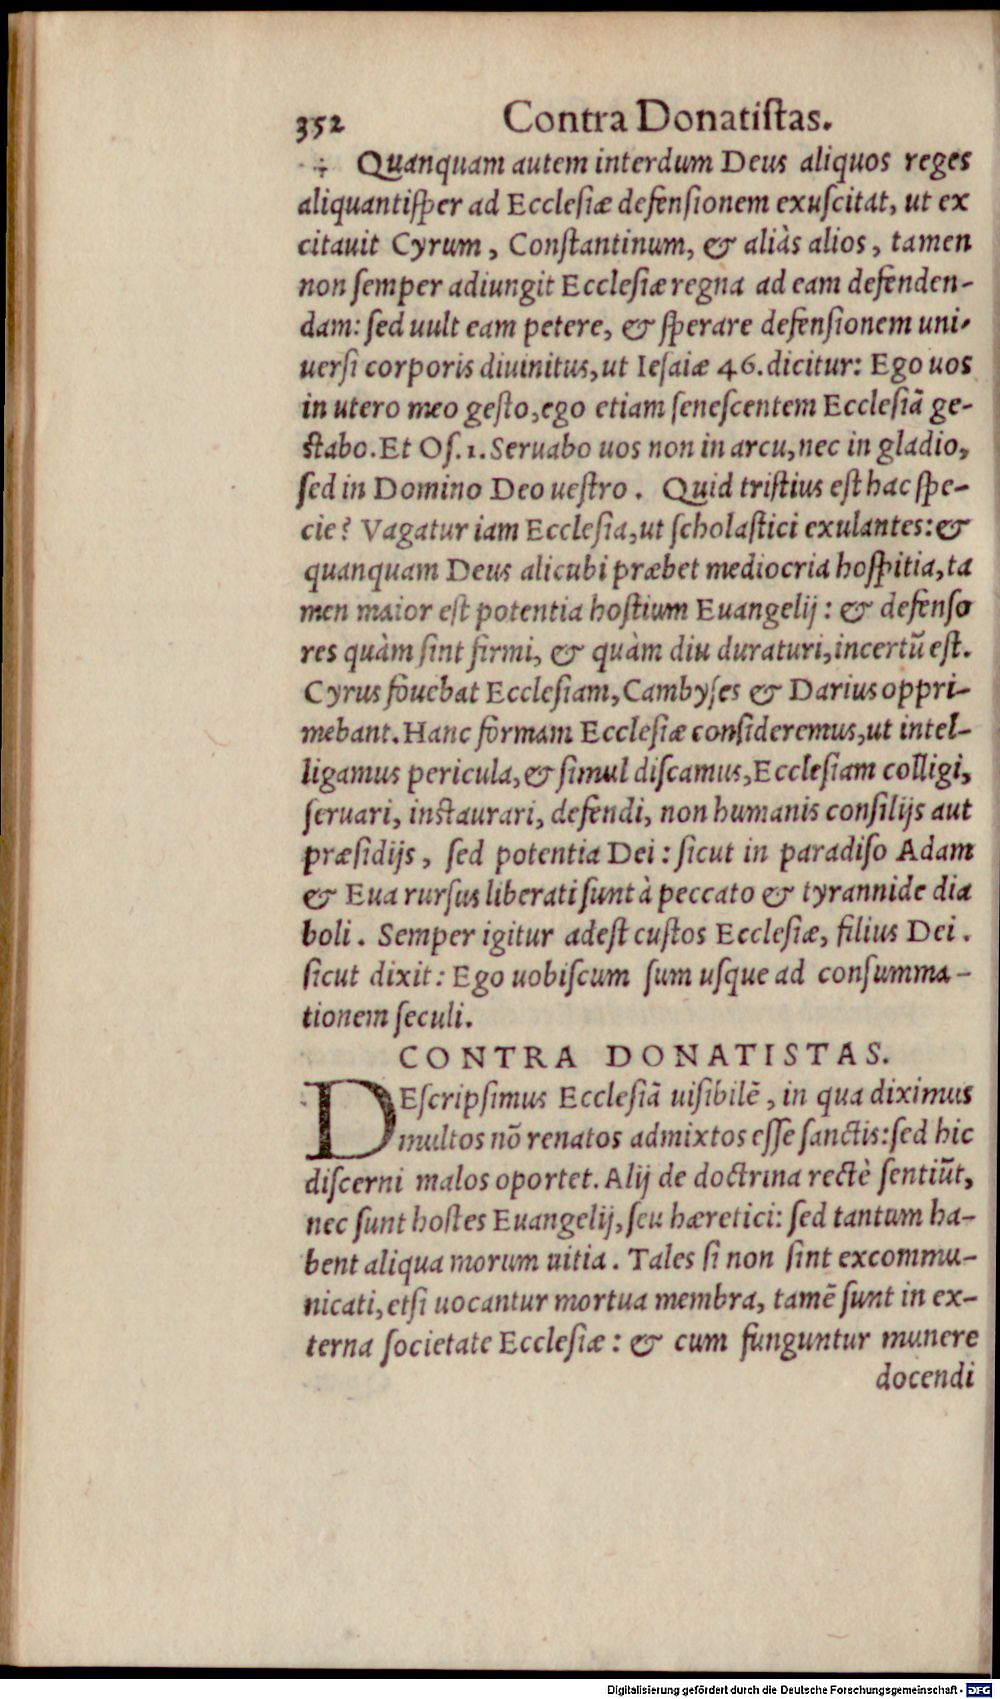 352 Contra Donatiſtas.
÷ Quanquam autem interdum Deus aliquos reges
aliquantiſper ad Eccleſiæ defenſionem exuſcitat, ut ex
citauit Cyrum, Conſtantinum, & aliàs alios, tamen
non ſemper adiungit Eccleſiæ regna ad eam defenden-
dam: ſed uult eam petere, & ſperare defenſionem uni-
uerſi corporis diuinitus, ut Ieſaiæ 46. dicitur: Ego uos
in utero meo geſto, ego etiam ſeneſcentem Eccleſiã ge-
ſtabo. Et Oſ. 1. Seruabo uos non in arcu, nec in gladio,
ſed in Domino Deo ueſtro. Quid triſtius eſt hac ſpe-
cie? Vagatur iam Eccleſia, ut ſcholaſtici exulantes: &
quanquam Deus alicubi præbet mediocria hoſpitia, ta
men maior eſt potentia hoſtium Euangelij: & defenſo
res quàm ſint firmi, & quàm diu duraturi, incertũ eſt.
Cyrus fouebat Eccleſiam, Cambyſes & Darius oppri-
mebant. Hanc formam Eccleſiæ conſideremus, ut intel-
ligamus pericula, & ſimul diſcamus, Eccleſiam colligi,
ſeruari, inſtaurari, defendi, non humanis conſilijs aut
præſidijs, ſed potentia Dei: ſicut in paradiſo Adam
& Eua rurſus liberati ſunt à peccato & tyrannide dia
boli. Semper igitur adeſt cuſtos Eccleſiæ, filius Dei.
ſicut dixit: Ego uobiſcum ſum uſque ad conſumma-
tionem ſeculi.
CONTRA DONATISTAS.
DEſcripſimus Eccleſiã uiſibilẽ, in qua diximus
multos nõ renatos admixtos eſſe ſanctis: ſed hic
diſcerni malos oportet. Alij de doctrina rectè ſentiũt,
nec ſunt hoſtes Euangelij, ſeu hæretici: ſed tantum ha-
bent aliqua morum uitia. Tales ſi non ſint excommu-
nicati, etſi uocantur mortua membra, tamẽ ſunt in ex-
terna ſocietate Eccleſiæ: & cum funguntur munere
docendi
Digitalisierung gefördert durch die Deutsche Forschungsgemeinschaft - DFG